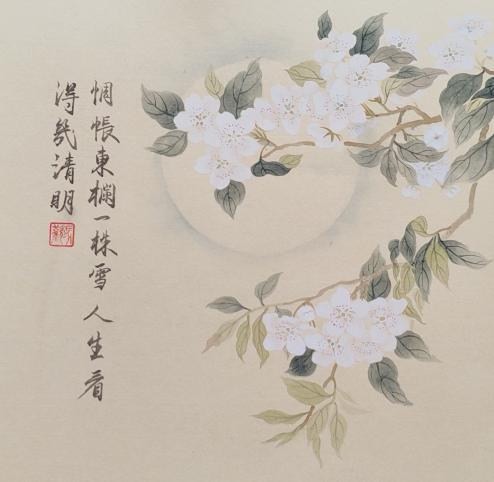 惆帳東欄一株雪人生看
得幾清明